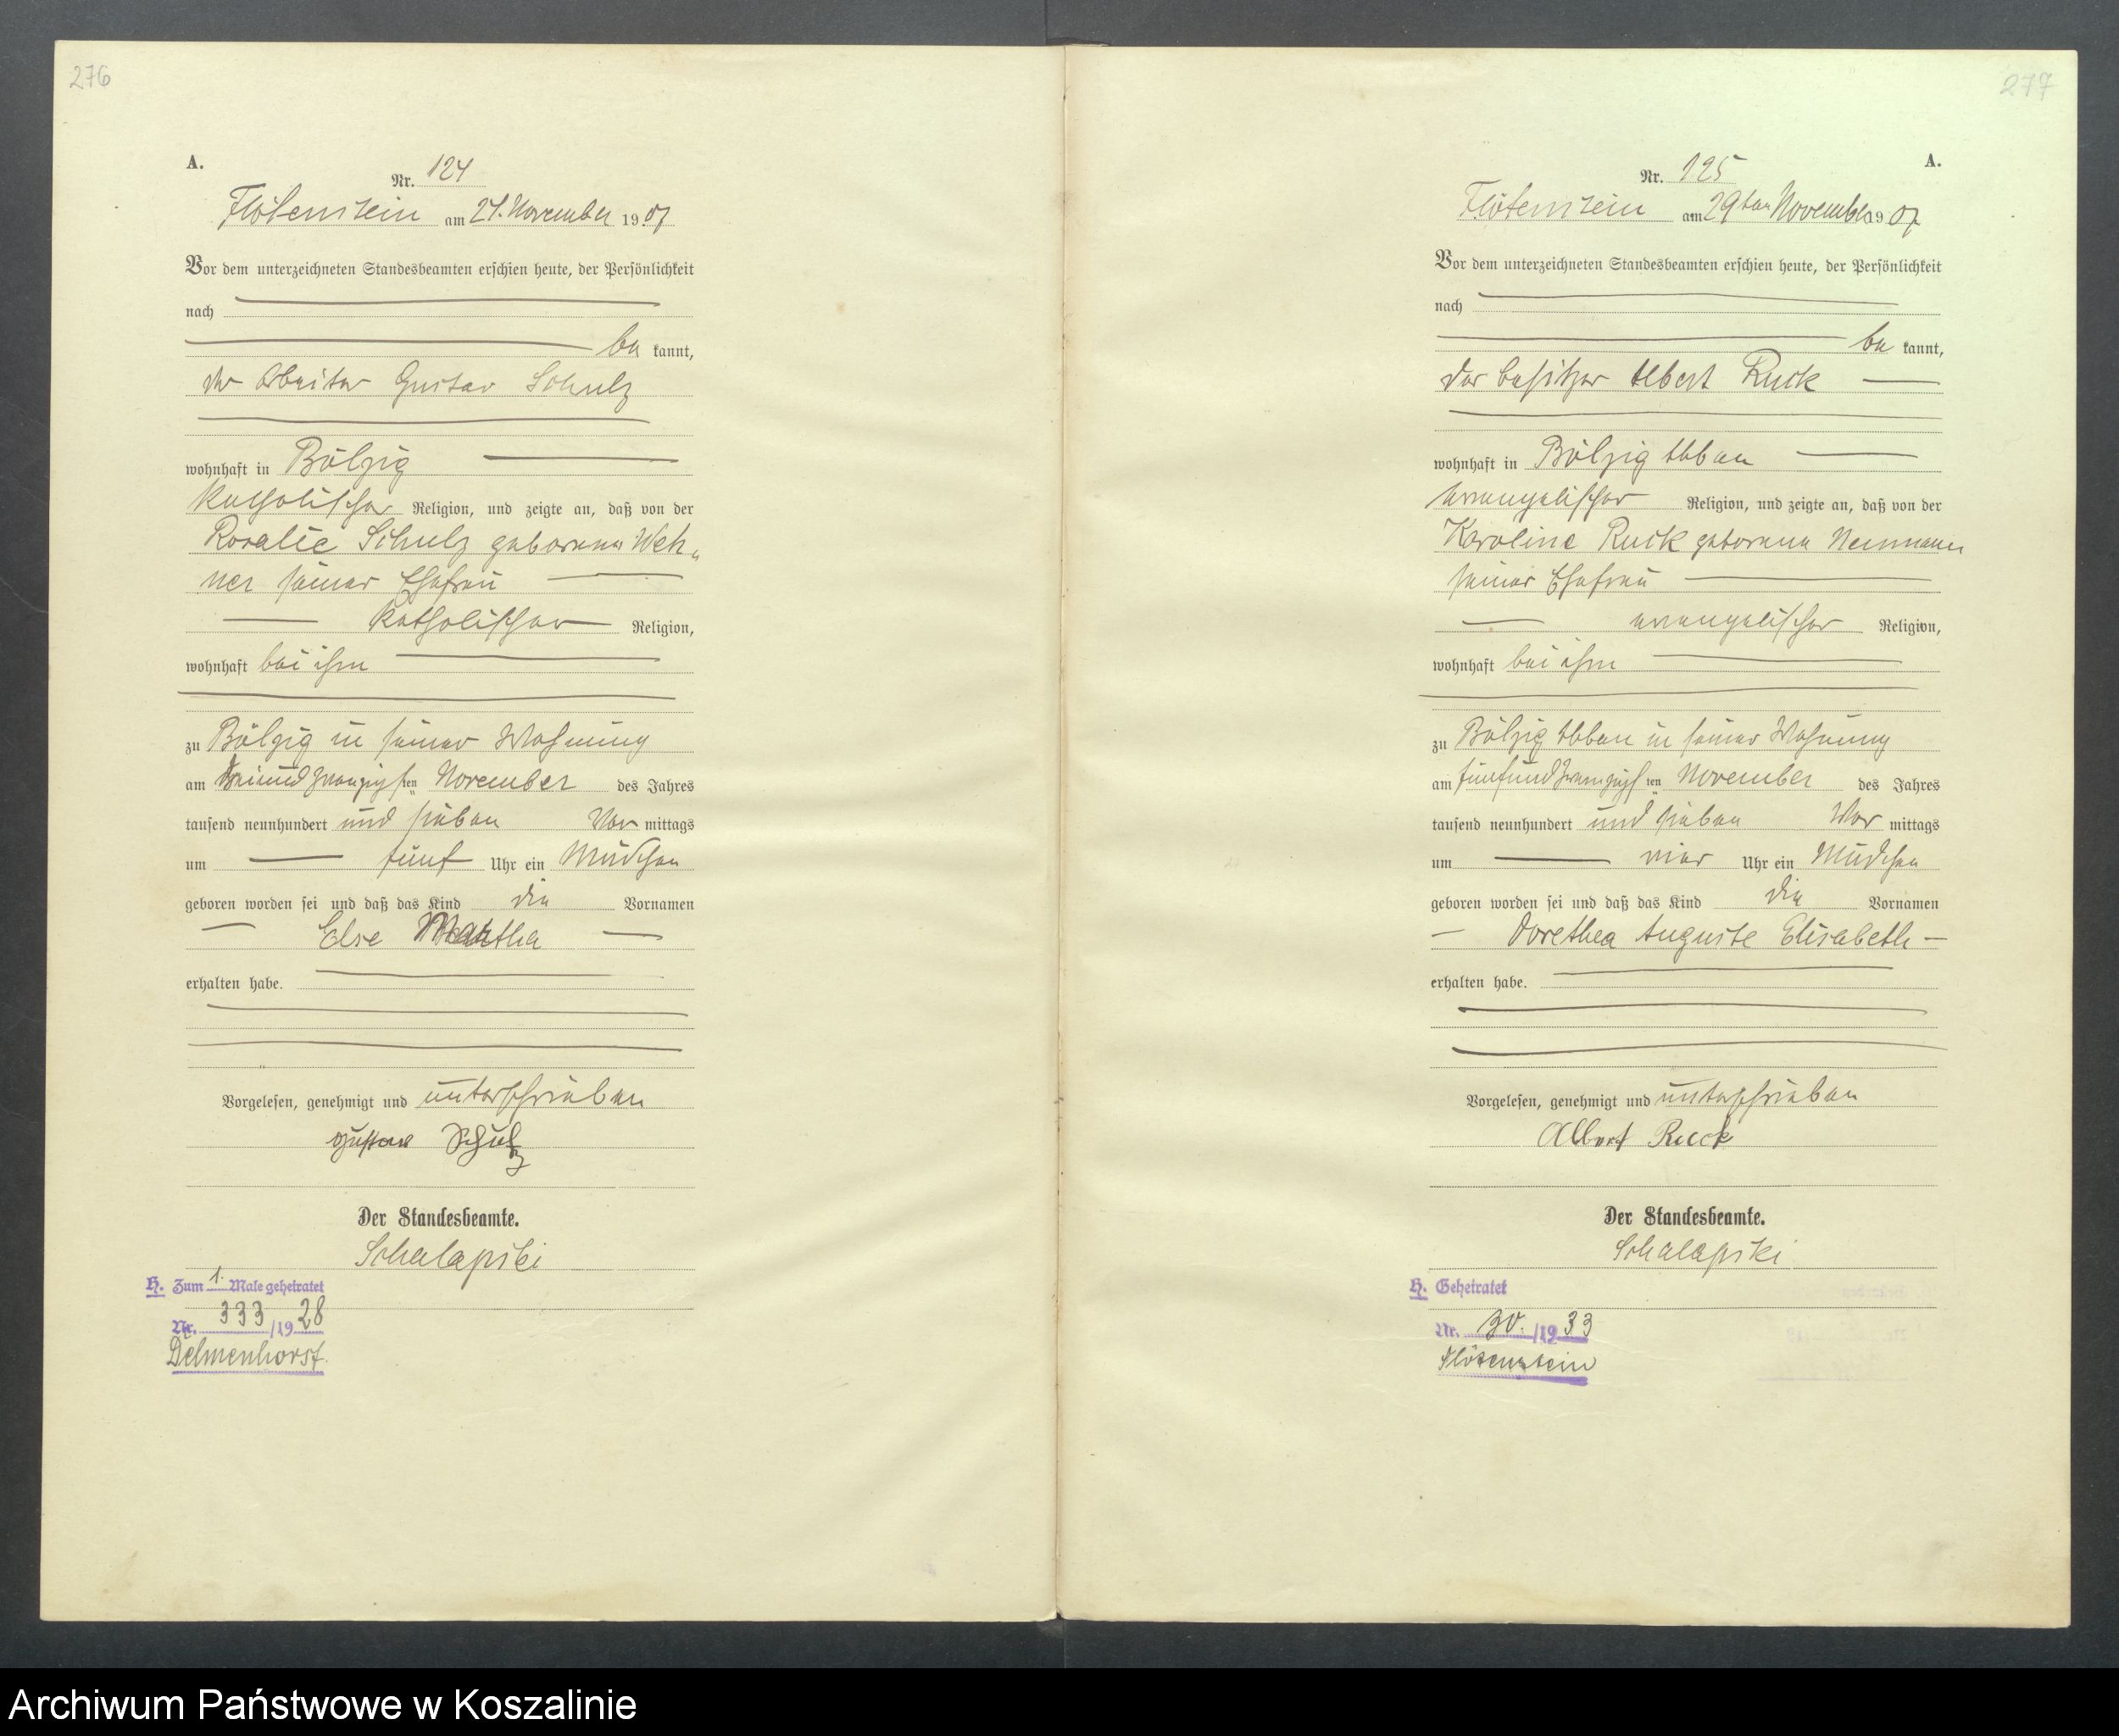 276
A.
Nr. 124
Flötenstein am 27. November 1907
Vor dem unterzeichneten Standesbeamten erschien heute, der Persönlichkeit
nach
be kannt,
der Arbeiter Gustav Schulz
wohnhaft in Bölzig
katholischer Religion, und zeigte an, daß von der
Rosalie Schulz geborenen Weh„
ner seiner Ehefrau
katholischer Religion,
wohnhaft bei ihm
zu Bölzig in seiner Wohnung
am dreiundzwanzigsten November des Jahres
tausend neunhundert und sieben Vor mittags
um fünf Uhr ein Mädchen
geboren worden sei und daß das Kind die Vornamen
Else Martha
erhalten habe.
Vorgelesen, genehmigt und unterschrieben
Gustav Schulz
Der Standesbeamte.
Schalapski
H. Zum 1. Male geheiratet
Nr. 333/1928
Delmenhorst.
277
A.
Nr. 125
Flötenstein am 29ten November 1907
Vor dem unterzeichneten Standesbeamten erschien heute, der Persönlichkeit
nach
be kannt,
der Besitzer Albert Ruck
wohnhaft in Bölzig Abbau
evangelischer Religion, und zeigte an, daß von der
Karoline Ruck geborene Neumann
seiner Ehefrau
evangelischer Religion,
wohnhaft bei ihm
zu Bölzig Abbau in seiner Wohnung
am fünfundzwanzigsten November des Jahres
tausend neunhundert und sieben Vor mittags
um vier Uhr ein Mädchen
geboren worden sei und daß das Kind die Vornamen
Dorethea Auguste Elisabeth
erhalten habe.
Vorgelesen, genehmigt und unterschrieben
Albert Ruck
Der Standesbeamte.
Schalapski
H. Geheiratet
Nr. 30./1933
Flötenstein
Archiwum Państwowe w Koszalinie